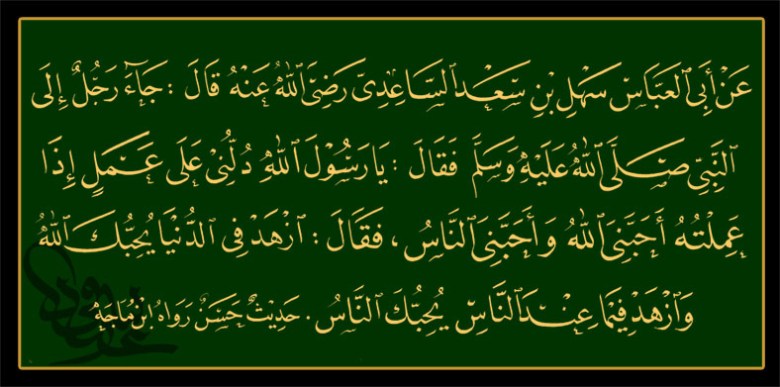 عَنْ أَبِي ٱلعَبَّاسِ سَهْلِ بْنِ سَعْدٍ ٱلسَّاعِدِيِّ رَضِيَ ٱللهُ عَنْهُ قَالَ : جَاءَ رَجُلٌ إِلَى
ٱلنَّبِيِّ صَلَّى ٱللهُ عَلَيْهِ وَسَلَّمَ فَقَالَ : يَا رَسُوْلَ ٱللهِ دُلَّنِيْ عَلَى عَمَلٍ إِذَا
عَمِلْتُهُ أَحَبَّنِيَ ٱللهُ وَأَحَبَّنِيَ ٱلنَّاسُ ، فَقَالَ : ٱزْهَدْ فِي ٱلدُّنْيَا يُحِبُّكَ ٱللهُ
وَٱزْهَدْ فِيْمَا عِنْدَ ٱلنَّاسِ يُحِبُّكَ ٱلنَّاسُ . حَدِيْثٌ حَسَنٌ رَوَاهُ ابْنُ مَاجَهْ